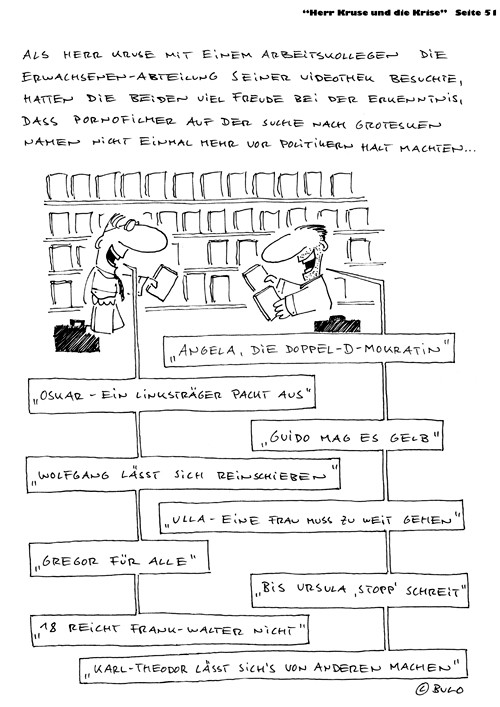 "Herr Kruse und die Krise" Seite 51
ALS HERR KRUSE MIT EINEM ARBEITSKOLLEGEN DIE
ERWACHSENEN-ABTEILUNG SEINER VIDEOTHEK BESUCHTE,
HATTEN DIE BEIDEN VIEL FREUDE BEI DER ERKENNTNIS,
DASS PORNOFILMER AUF DER SUCHE NACH GROTESKEN
NAMEN NICHT EINMAL MEHR VOR POLITIKERN HALT MACHTEN...
„ANGELA, DIE DOPPEL-D-MOKRATIN"
„OSKAR - EIN LINKSTRÄGER PACKT AUS"
„GUIDO MAG ES GELB"
„WOLFGANG LÄSST SICH REINSCHIEBEN"
„ULLA - EINE FRAU MUSS ZU WEIT GEHEN"
„GREGOR FÜR ALLE"
„BIS URSULA ‚STOPP' SCHREIT"
„18 REICHT FRANK-WALTER NICHT"
„KARL-THEODOR LÄSST SICH'S VON ANDEREN MACHEN"
© BULO